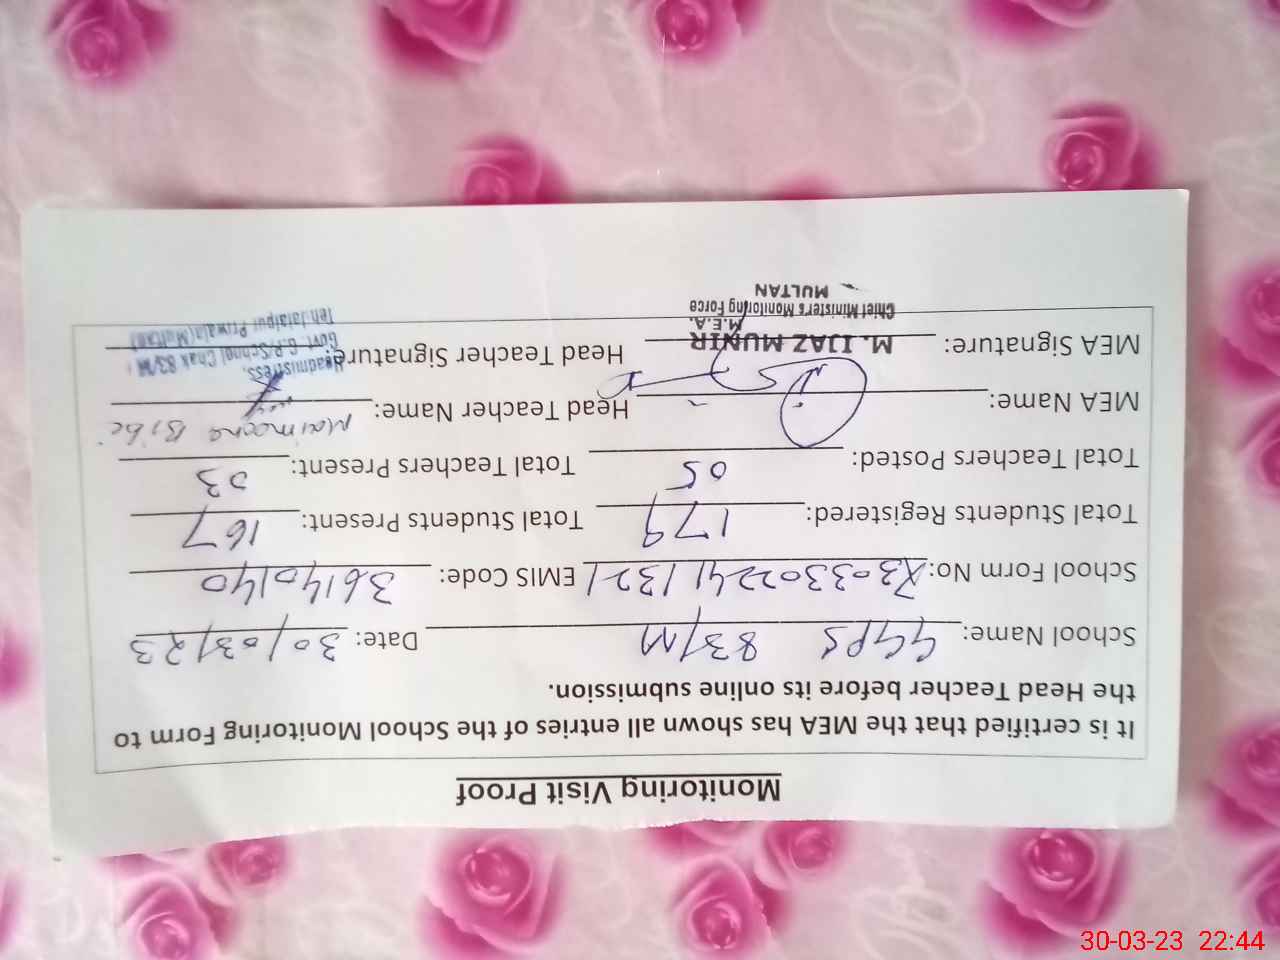 Monitoring Visit Proof
It is certified that the MEA has shown all entries of the School Monitoring Form to
the Head Teacher before its online submission.
School Name: GGPS 83/M Date: 30/03/23
School Form No: X3033022411321 EMIS Code: 36140140
Total Students Registered: 179 Total Students Present: 167
Total Teachers Posted: 05 Total Teachers Present: 03
MEA Name: Head Teacher Name: Maimoona Bibi
MEA Signature: Head Teacher Signature:
M. IJAZ MUNIR
M.E.A.
Chief Minister's Monitoring Force
MULTAN
Headmistress,
Govt. G.P/School Chak 83/M
Teh Jalalpur Pirwala (Multan)
30-03-23 22:44